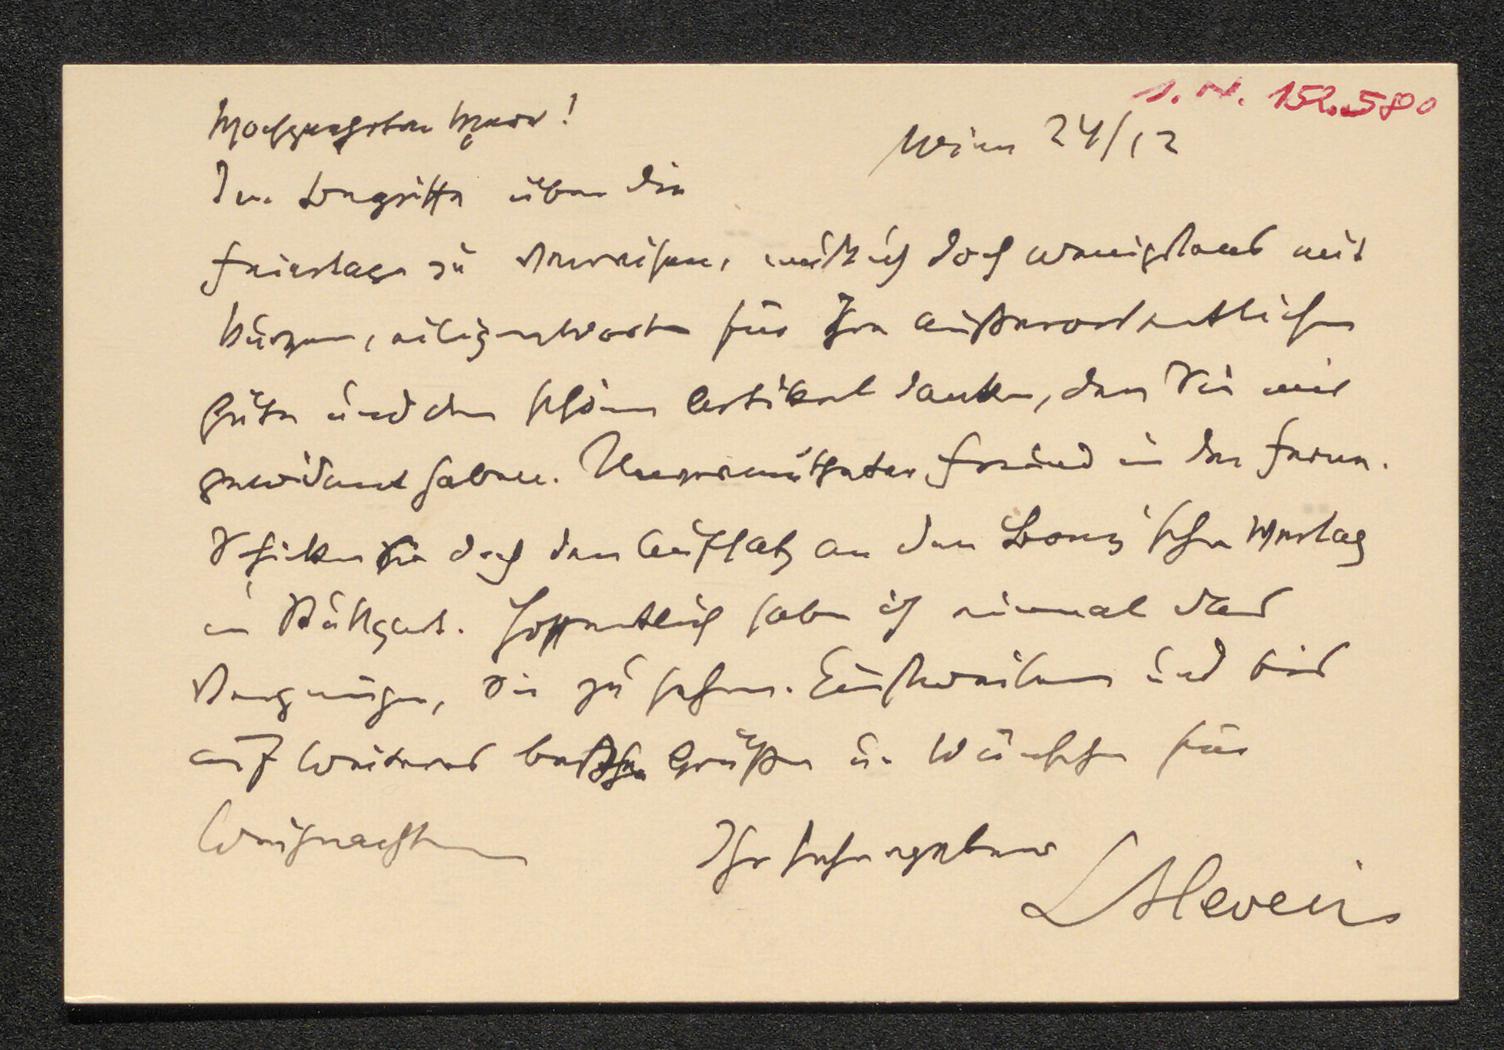 I. N. 152.580
Hochgeehrter Herr!
Wien 24/12
Im Begriffe über die
Feiertage zu verreisen, will ich doch wenigstens mit
kurzen, eiligen Worten für Ihre außerordentliche
Güte und den schönen Artikel danken, den Sie mir
gewidmet haben. Unvermutheter Freund in der Ferne.
Schicken Sie doch den Aufsatz an den Bonz'schen Verlag
in Stuttgart. Hoffentlich habe ich einmal das
Vergnügen, Sie zu sehen. Einstweilen und bis
auf Weiteres beste Grüße u. Wünsche für
Weihnachten
Ihr sehr ergebener
L Hevesi